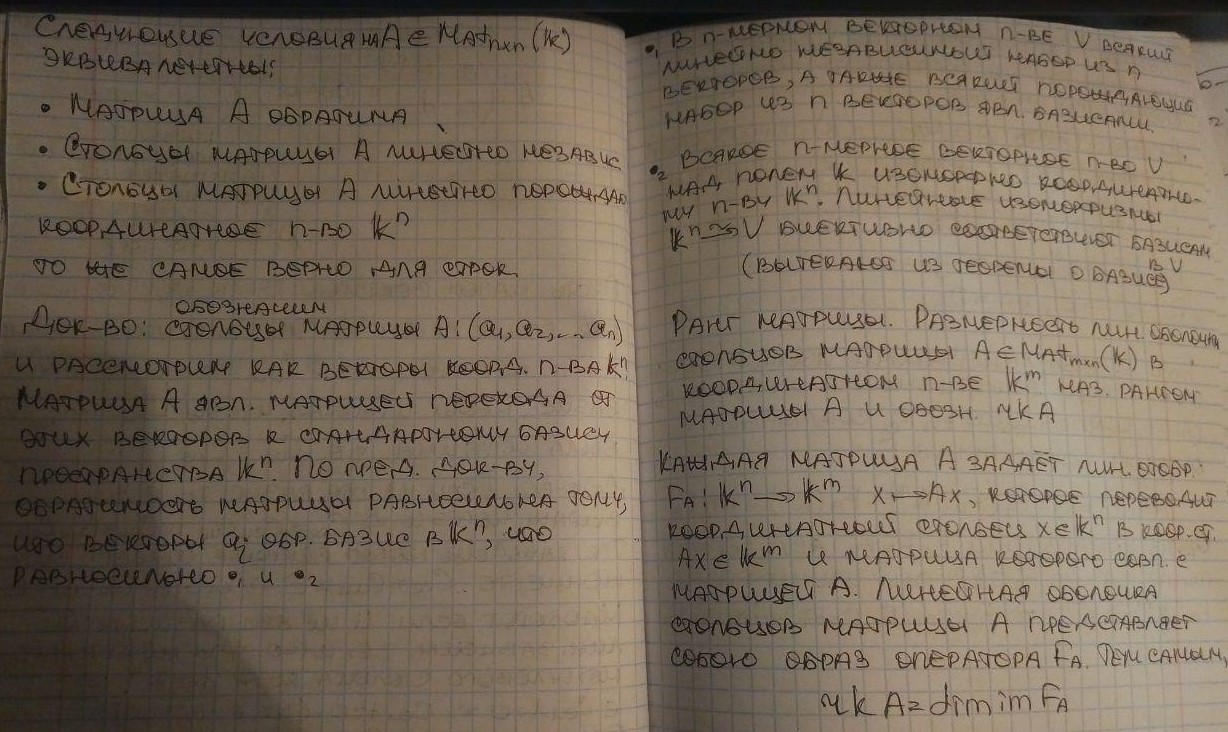 Следующие условия на A ∈ Mat n×n (𝕜)
эквивалентны:
• Матрица A обратима
• Столбцы матрицы A линейно независ
• Столбцы матрицы A линейно порождаю
координатное п-во 𝕜ⁿ
То же самое верно для строк
обозначим
Док-во: столбцы матрицы A: (a₁, a₂, ... aₙ)
и рассмотрим как векторы коорд. п-ва 𝕜ⁿ.
Матрица A явл. матрицей перехода от
этих векторов к стандартному базису
пространства 𝕜ⁿ. По пред. док-ву,
обратимость матрицы равносильна тому,
что векторы aᵢ обр. базис в 𝕜ⁿ, что
равносильно •₁ и •₂
•₁ В n-мерном векторном п-ве V всякий
линейно независимый набор из n
векторов, а также всякий порождающий
набор из n векторов явл. базисами.
•₂ Всякое n-мерное векторное п-во V
над полем 𝕜 изоморфно координатно-
му п-ву 𝕜ⁿ. Линейные изоморфизмы
𝕜ⁿ ⥲ V биективно соответствуют базисам
в V
(вытекают из теоремы о базисе)
Ранг матрицы. Размерность лин. оболочки
столбцов матрицы A ∈ Mat m×n (𝕜) в
координатном п-ве 𝕜ᵐ наз. рангом
матрицы A и обозн. rk A
Каждая матрица A задаёт лин. отобр:
F_A: 𝕜ⁿ → 𝕜ᵐ x ↦ Ax, которое переводит
координатный столбец x ∈ 𝕜ⁿ в коор. ст.
Ax ∈ 𝕜ᵐ и матрица которого совп. с
матрицей A. Линейная оболочка
столбцов матрицы A представляет
собою образ оператора F_A. Тем самым,
rk A = dim im F_A